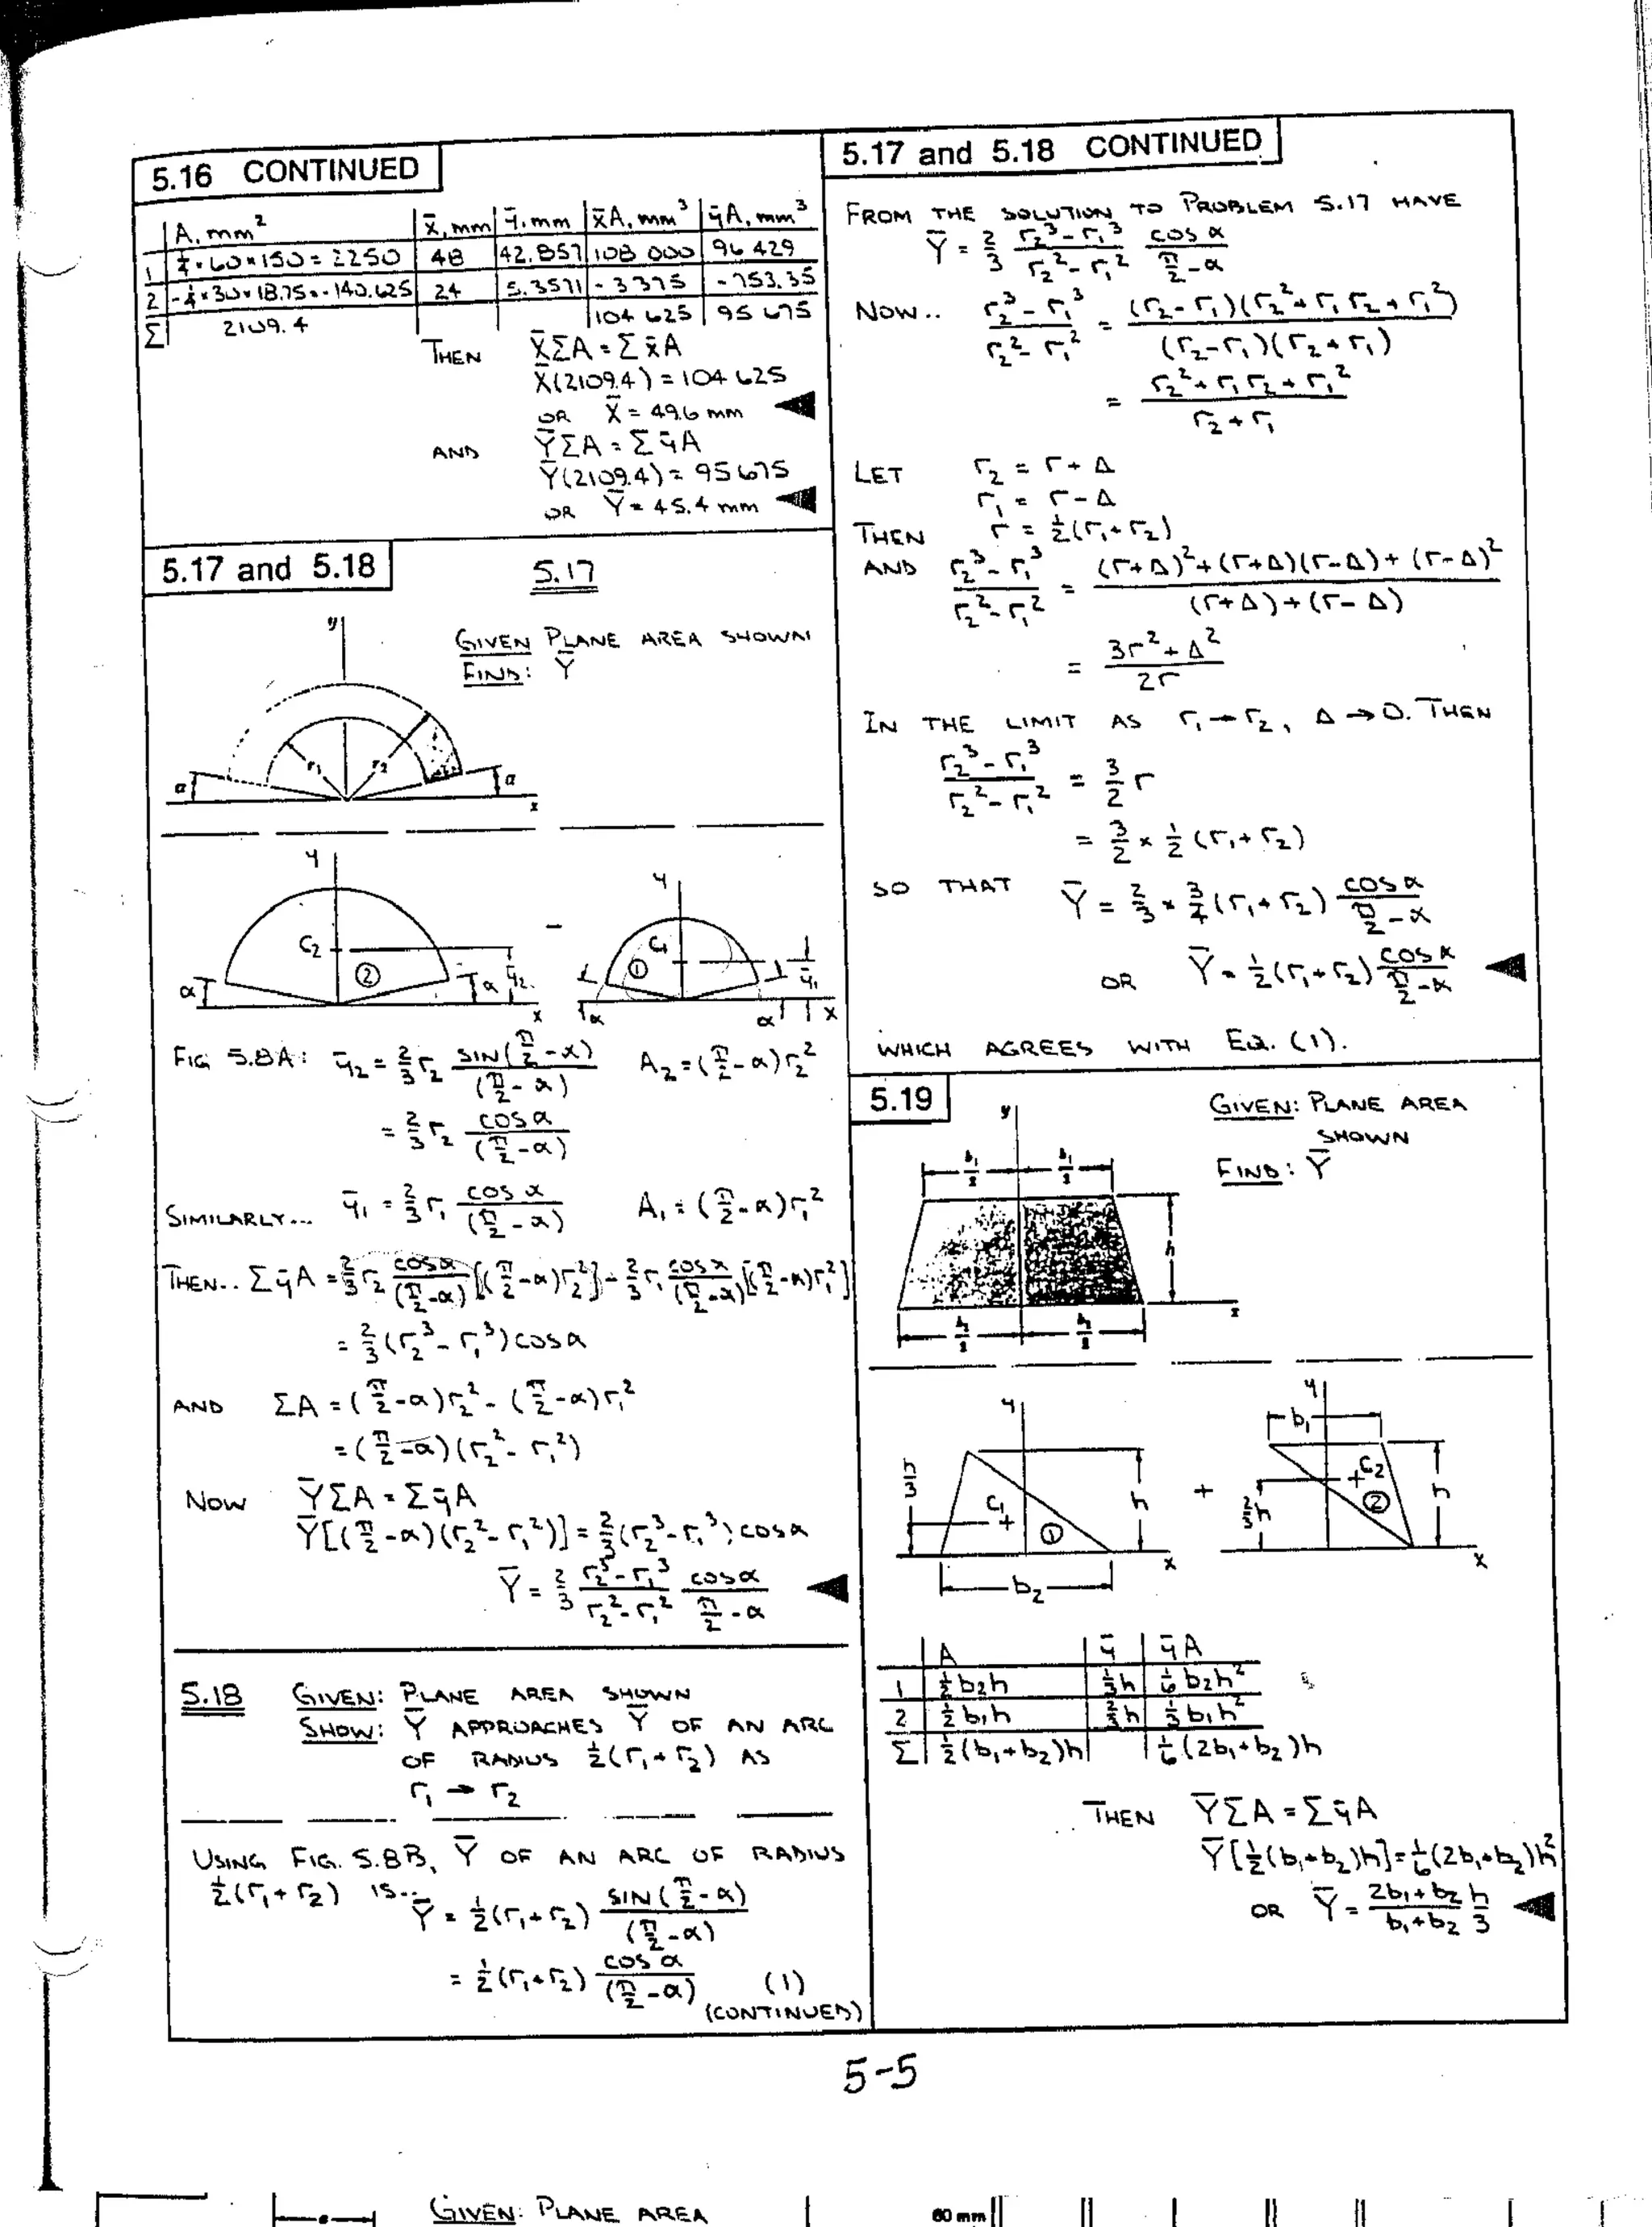 5.16 CONTINUED
A, mm² | x̄, mm | ȳ, mm | x̄A, mm³ | ȳA, mm³
1 | ¼×60×150 = 2250 | 48 | 42.857 | 108 000 | 96 429
2 | -¼×30×18.75 = -140.625 | 24 | 5.3571 | -3375 | -753.35
Σ | 2109.4 | | | 104 625 | 95 675
THEN X̄ΣA = Σx̄A
X̄(2109.4) = 104 625
OR X̄ = 49.6 mm
AND ȲΣA = ΣȳA
Ȳ(2109.4) = 95 675
OR Ȳ = 45.4 mm
5.17 and 5.18
5.17
GIVEN PLANE AREA SHOWN
FIND: Ȳ
y
r₁ r₂
α α
x
y y
C₂ C₁
② ①
α α ȳ₂ ȳ₁
x α α x
FIG 5.8A: ȳ₂ = ⅔ r₂ SIN(π/2 - α)/(π/2 - α) A₂ = (π/2 - α)r₂²
= ⅔ r₂ COS α/(π/2 - α)
SIMILARLY... ȳ₁ = ⅔ r₁ COS α/(π/2 - α) A₁ = (π/2 - α)r₁²
THEN.. ΣȳA = ⅔ r₂ COS α/(π/2 - α) [(π/2 - α)r₂²] - ⅔ r₁ COS α/(π/2 - α) [(π/2 - α)r₁²]
= ⅔(r₂³ - r₁³)COS α
AND ΣA = (π/2 - α)r₂² - (π/2 - α)r₁²
= (π/2 - α)(r₂² - r₁²)
NOW ȲΣA = ΣȳA
Ȳ[(π/2 - α)(r₂² - r₁²)] = ⅔(r₂³ - r₁³)COS α
Ȳ = ⅔ (r₂³ - r₁³)/(r₂² - r₁²) COS α/(π/2 - α)
5.18 GIVEN: PLANE AREA SHOWN
SHOW: Ȳ APPROACHES Ȳ OF AN ARC
OF RADIUS ½(r₁ + r₂) AS
r₁ → r₂
USING FIG. 5.8B, Ȳ OF AN ARC OF RADIUS
½(r₁ + r₂) IS..
Ȳ = ½(r₁ + r₂) SIN(π/2 - α)/(π/2 - α)
= ½(r₁ + r₂) COS α/(π/2 - α) (1)
(CONTINUED)
5.17 and 5.18 CONTINUED
FROM THE SOLUTION TO PROBLEM 5.17 HAVE
Ȳ = ⅔ (r₂³ - r₁³)/(r₂² - r₁²) COS α/(π/2 - α)
NOW.. (r₂³ - r₁³)/(r₂² - r₁²) = (r₂ - r₁)(r₂² + r₁r₂ + r₁²)/(r₂ - r₁)(r₂ + r₁)
= (r₂² + r₁r₂ + r₁²)/(r₂ + r₁)
LET r₂ = r + Δ
r₁ = r - Δ
THEN r = ½(r₁ + r₂)
AND (r₂³ - r₁³)/(r₂² - r₁²) = ((r + Δ)² + (r + Δ)(r - Δ) + (r - Δ)²)/((r + Δ) + (r - Δ))
= (3r² + Δ²)/2r
IN THE LIMIT AS r₁ → r₂, Δ → 0. THEN
(r₂³ - r₁³)/(r₂² - r₁²) = 3/2 r
= 3/2 × ½(r₁ + r₂)
SO THAT Ȳ = ⅔ × ¾(r₁ + r₂) COS α/(π/2 - α)
OR Ȳ = ½(r₁ + r₂) COS α/(π/2 - α)
WHICH AGREES WITH EQ. (1).
5.19
GIVEN: PLANE AREA
SHOWN
FIND: Ȳ
y
b₁/2 b₁/2
h
x
b₂/2 b₂/2
y y
b₁
h/3 C₁ ① h + ⅔h C₂ ② h
x x
b₂
A | ȳ | ȳA
1 | ½b₂h | ⅓h | ⅙b₂h²
2 | ½b₁h | ⅔h | ⅓b₁h²
Σ | ½(b₁ + b₂)h | | ⅙(2b₁ + b₂)h
THEN ȲΣA = ΣȳA
Ȳ[½(b₁ + b₂)h] = ⅙(2b₁ + b₂)h²
OR Ȳ = (2b₁ + b₂)/(b₁ + b₂) h/3
5-5
GIVEN: PLANE AREA
60 mm